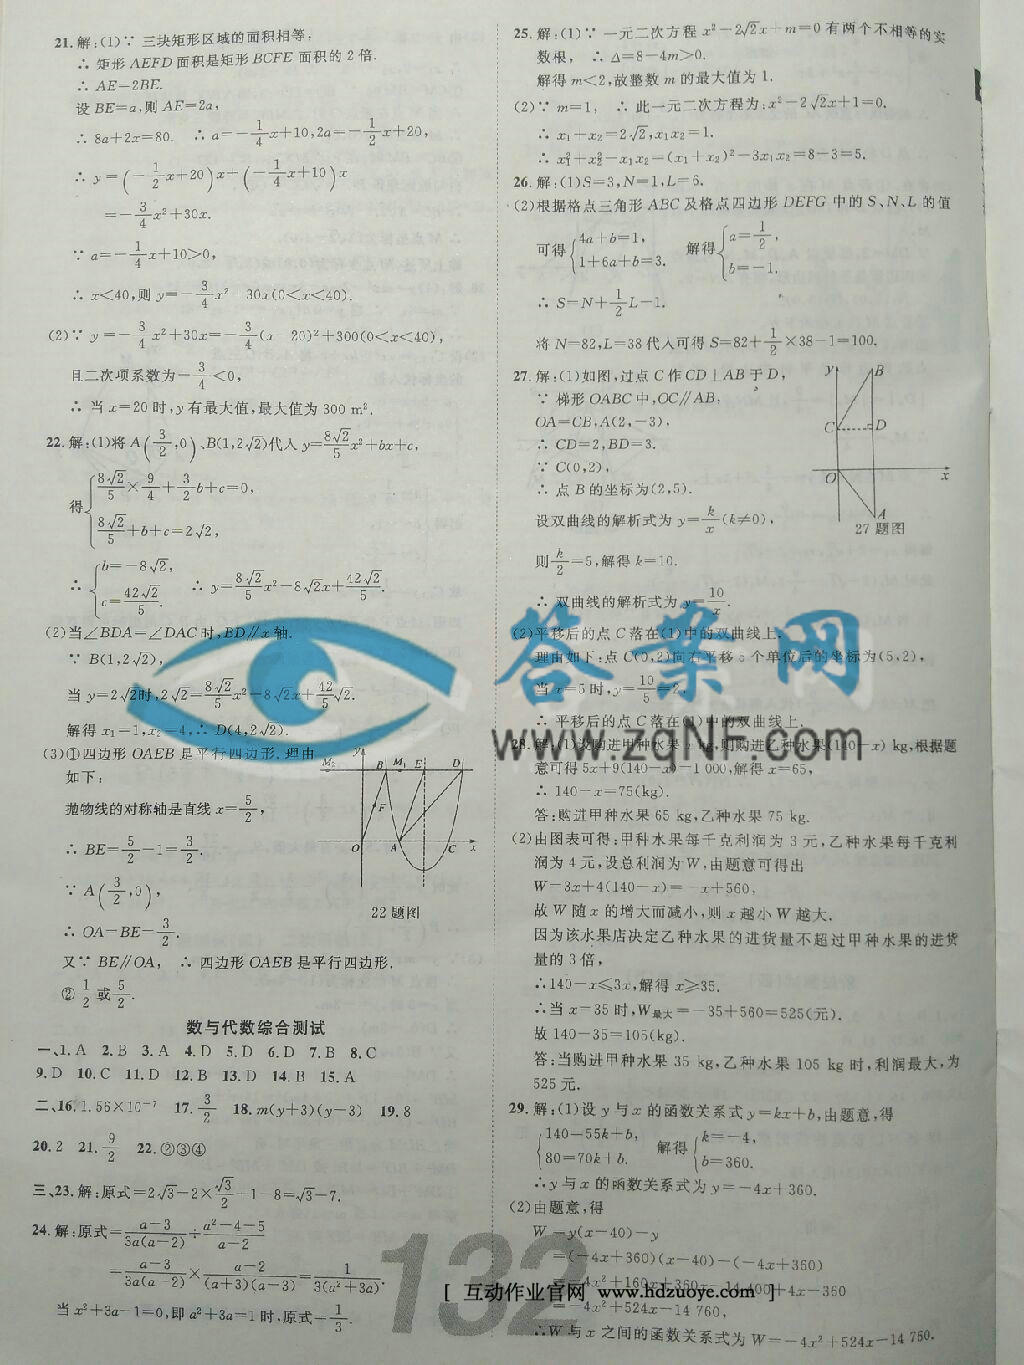 21.解:(1)∵三块矩形区域的面积相等,
∴矩形AEFD面积是矩形BCFE面积的2倍.
∴AE=2BE.
设BE=a,则AE=2a,
∴8a+2x=80. ∴a=-1/4x+10,2a=-1/2x+20,
∴y=(-1/2x+20)x+(-1/4x+10)x
=-3/4x²+30x.
∵a=-1/4x+10>0,
∴x<40,则y=-3/4x²+30x(0<x<40).
(2)∵y=-3/4x²+30x=-3/4(x-20)²+300(0<x<40),
且二次项系数为-3/4<0,
∴当x=20时,y有最大值,最大值为300 m².
22.解:(1)将A(3/2,0)、B(1,2√2)代入y=8√2/5x²+bx+c,
得{8√2/5×9/4+3/2b+c=0,
8√2/5+b+c=2√2,
∴{b=-8√2,
c=42√2/5. ∴y=8√2/5x²-8√2x+42√2/5.
(2)当∠BDA=∠DAC时,BD∥x轴.
∵B(1,2√2),
当y=2√2时,2√2=8√2/5x²-8√2x+42/5√2.
解得x₁=1,x₂=4,∴D(4,2√2).
(3)①四边形OAEB是平行四边形.理由
如下:
抛物线的对称轴是直线x=5/2,
∴BE=5/2-1=3/2.
∵A(3/2,0),
∴OA=BE=3/2.
又∵BE∥OA, ∴四边形OAEB是平行四边形.
②1/2或5/2.
y
M₂ B M₁ E D
F
O A C x
22题图
数与代数综合测试
一、1.A 2.B 3.A 4.D 5.D 6.D 7.B 8.C
9.D 10.C 11.D 12.B 13.D 14.B 15.A
二、16.1.56×10⁻⁷ 17.3/2 18.m(y+3)(y-3) 19.8
20.2 21.9/2 22.②③④
三、23.解:原式=2√3-2×√3/2+1-8=√3-7.
24.解:原式=a-3/3a(a-2)÷a²-4-5/a-2
=a-3/3a(a-2)×a-2/(a+3)(a-3)=1/3(a²+3a).
当a²+3a-1=0,即a²+3a=1时,原式=1/3.
25.解:(1)∵一元二次方程x²-2√2x+m=0有两个不相等的实
数根, ∴Δ=8-4m>0.
解得m<2,故整数m的最大值为1.
(2)∵m=1, ∴此一元二次方程为:x²-2√2x+1=0.
∴x₁+x₂=2√2,x₁x₂=1.
∴x₁²+x₂²-x₁x₂=(x₁+x₂)²-3x₁x₂=8-3=5.
26.解:(1)S=3,N=1,L=6.
(2)根据格点三角形ABC及格点四边形DEFG中的S、N、L的值
可得{4a+b=1,
1+6a+b=3. 解得{a=1/2,
b=-1.
∴S=N+1/2L-1.
将N=82,L=38代入可得S=82+1/2×38-1=100.
27.解:(1)如图,过点C作CD⊥AB于D,
∵梯形OABC中,OC∥AB,
OA=CB,A(2,-3),
∴CD=2,BD=3.
∵C(0,2),
∴点B的坐标为(2,5).
设双曲线的解析式为y=k/x(k≠0),
则k/2=5,解得k=10.
∴双曲线的解析式为y=10/x.
y B
C D
O x
A
27题图
(2)平移后的点C落在(1)中的双曲线上.
理由如下:点C(0,2)向右平移5个单位后的坐标为(5,2),
当x=5时,y=10/5=2,
∴平移后的点C落在(1)中的双曲线上.
28.解:(1)设购进甲种水果x kg,则购进乙种水果(140-x) kg,根据题
意可得5x+9(140-x)=1 000,解得x=65,
∴140-x=75(kg).
答:购进甲种水果65 kg,乙种水果75 kg.
(2)由图表可得:甲种水果每千克利润为3元,乙种水果每千克利
润为4元,设总利润为W,由题意可得出
W=3x+4(140-x)=-x+560,
故W随x的增大而减小,则x越小W越大.
因为该水果店决定乙种水果的进货量不超过甲种水果的进货
量的3倍,
∴140-x≤3x,解得x≥35.
∴当x=35时,W最大=-35+560=525(元).
故140-35=105(kg).
答:当购进甲种水果35 kg,乙种水果105 kg时,利润最大,为
525元.
29.解:(1)设y与x的函数关系式y=kx+b,由题意,得
{140=55k+b,
80=70k+b. 解得{k=-4,
b=360.
∴y与x的函数关系式为y=-4x+360.
(2)由题意,得
W=y(x-40)-y
=(-4x+360)(x-40)-(-4x+360)
=-4x²+160x+360x-14 400+4x-360
=-4x²+524x-14 760,
∴W与x之间的函数关系式为W=-4x²+524x-14 760.
132
[ 互动作业官网 www.hdzuoye.com ]
答案网
www.zqNF.com